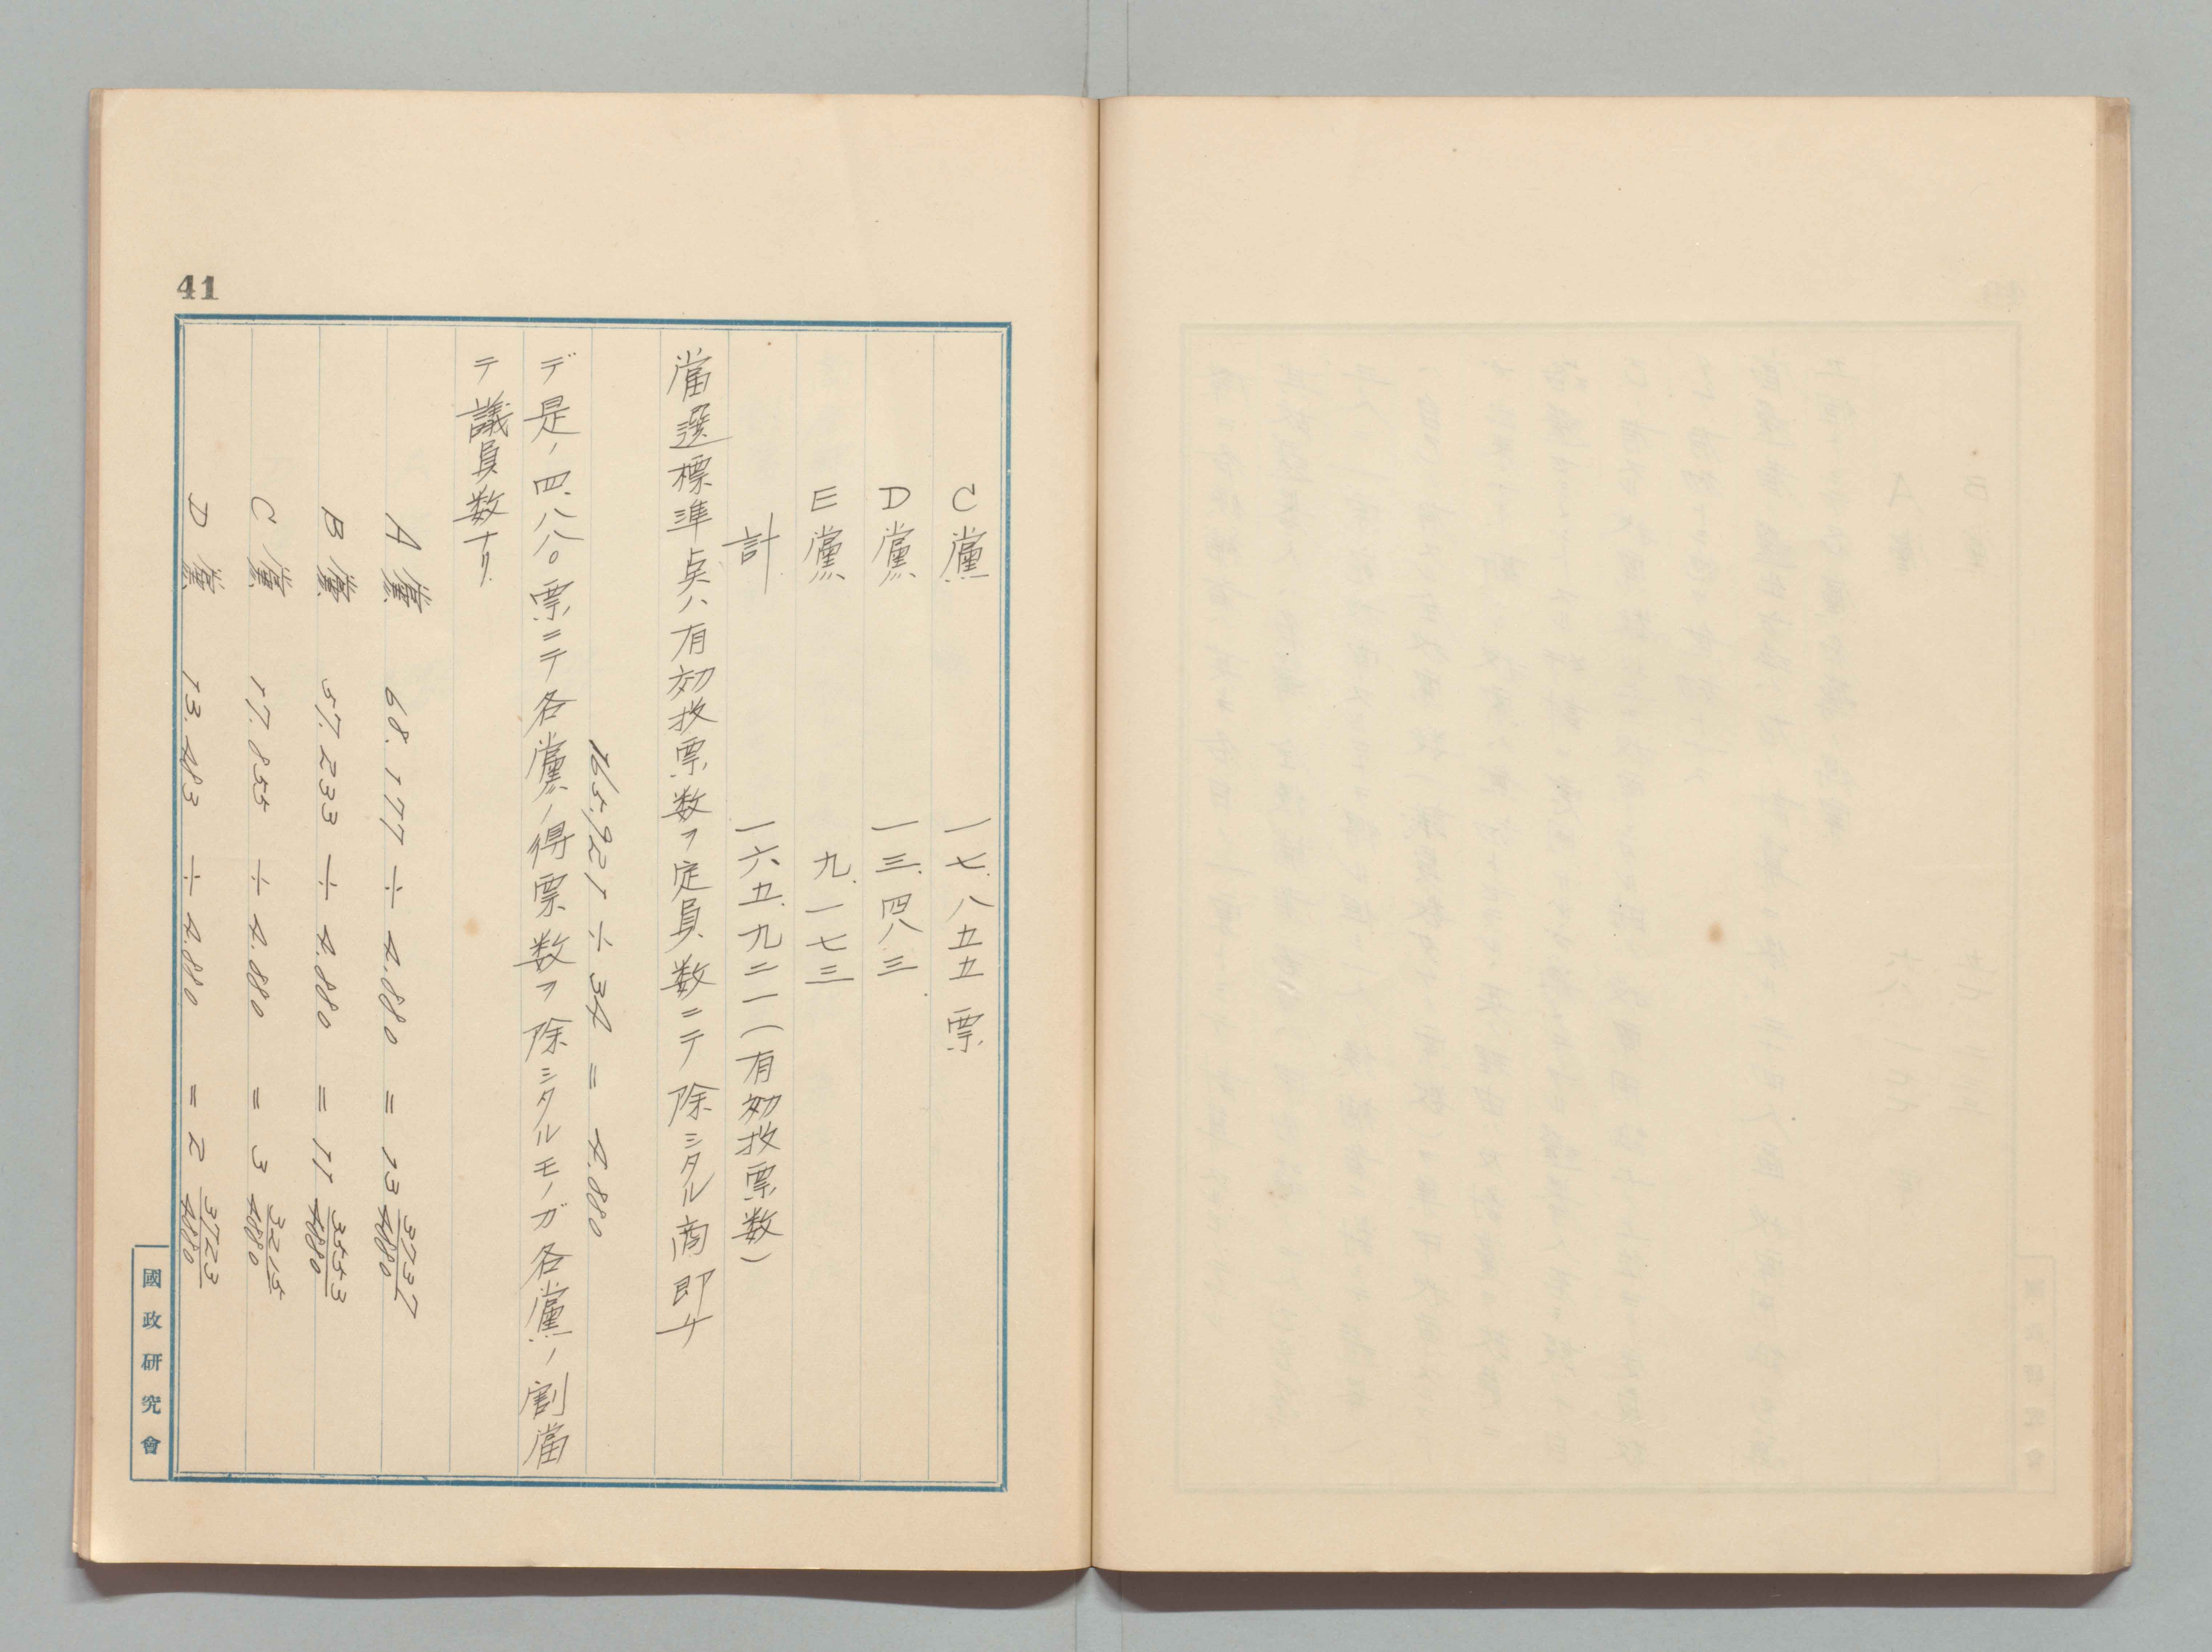 41
C黨 一七.八五五票
D黨 一三.四八三
E黨 九.一七三
計 一六五.九二一(有効投票数)
當選標準点ハ有効投票数ヲ定員数ニテ除シタル商即チ
165,921 ÷ 34 = 4.880
デ是ノ四.八八〇票ニテ各黨ノ得票数ヲ除シタルモノガ各黨ノ割當
テ議員数ナリ.
A黨 68.177 ÷ 4.880 = 13 3737/4880
B黨 57.233 ÷ 4.880 = 11 3553/4880
C黨 17.855 ÷ 4.880 = 3 3215/4880
D黨 13.483 ÷ 4.880 = 2 3723/4880
國政研究會